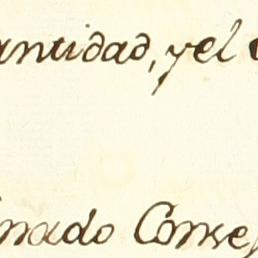 antidad, y el
nado Conse